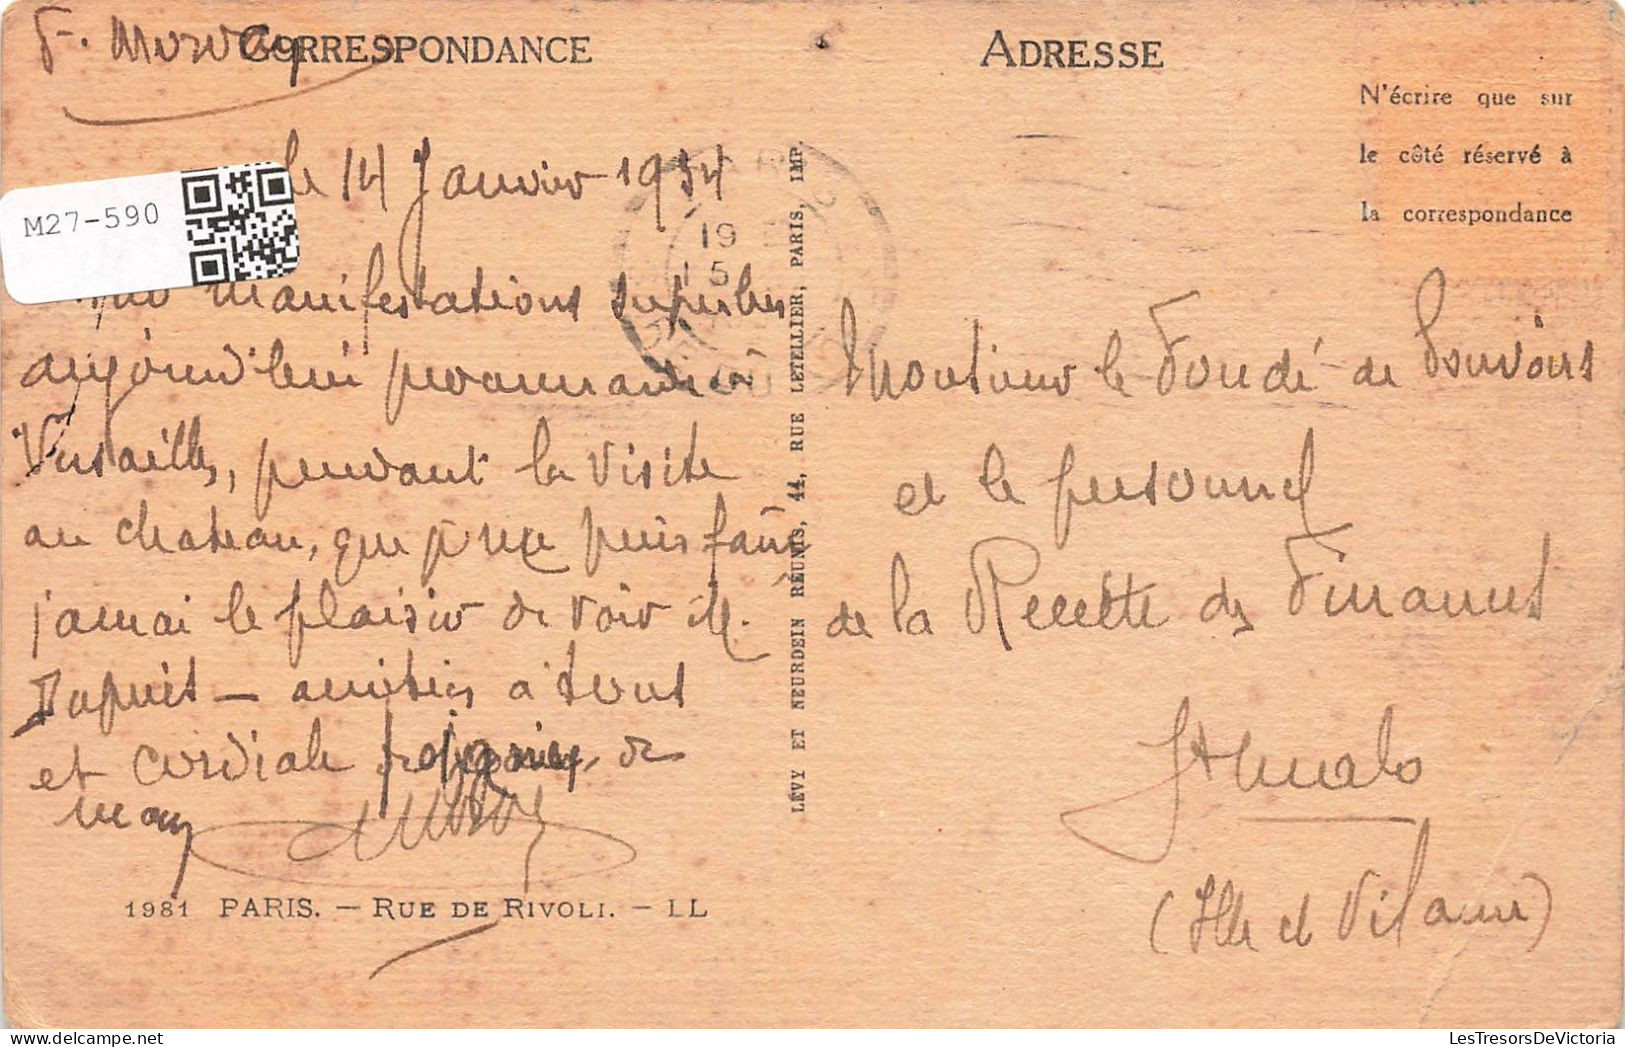 F. Morvan
CORRESPONDANCE
le 14 Janvier 1934
manifestations superbes
aujourd'hui promenade à
Versailles, pendant la visite
au chateau, que je ne puis faire
j'aurai le plaisir de voir M.
Dupuis — amitiés à tous
et cordiale poignée de
main
1981 PARIS. — RUE DE RIVOLI. — LL
LÉVY ET NEURDEIN RÉUNIS, 44, RUE LETELLIER, PARIS, IMP.
ADRESSE
N'écrire que sur
le côté réservé à
la correspondance
19
15
Monsieur le Fondé de Pouvoirs
et le personnel
de la Recette des Finances
St Malo
(Ille et Vilaine)
M27-590
LesTresorsDeVictoria.com